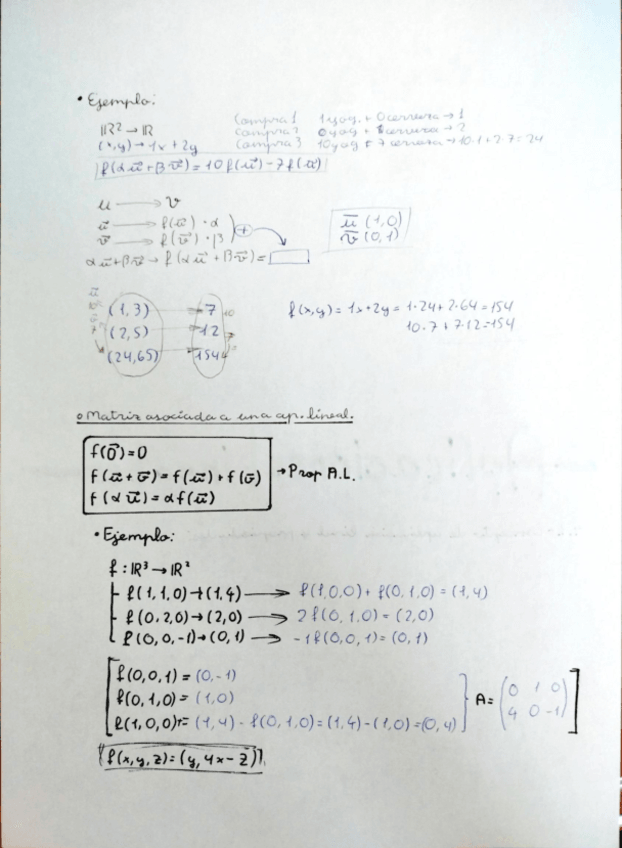 • Ejemplo:
ℝ² → ℝ
(x,y) → 1x + 2y
Compra 1 1 yog. + 0 cerveza → 1
Compra 2 0 yog + 1 cerveza → 2
Compra 3 10 yog + 7 cerveza → 10·1 + 2·7 = 24
f(α u⃗ + β v⃗) = 10 f(u⃗) - 7 f(u⃗)
u → v
u⃗ → f(u⃗) · α
v⃗ → f(v⃗) · β
+
α u⃗ + β v⃗ → f(α u⃗ + β v⃗) =
u̅ (1,0)
v̅ (0,1)
(1,3) → 7
(2,5) → 12
(24,65) → 154
f(x,y) = 1x + 2y = 1·24 + 2·64 = 154
10·7 + 7·12 = 154
o Matriz asociada a una ap. lineal.
f(0⃗) = 0
f(u⃗ + v⃗) = f(u⃗) + f(v⃗)
f(α u⃗) = α f(u⃗)
→ Prop A.L.
• Ejemplo:
f : ℝ³ → ℝ²
f(1,1,0) → (1,4) → f(1,0,0) + f(0,1,0) = (1,4)
f(0,2,0) → (2,0) → 2f(0,1,0) = (2,0)
f(0,0,-1) → (0,1) → -1f(0,0,1) = (0,1)
f(0,0,1) = (0,-1)
f(0,1,0) = (1,0)
f(1,0,0) = (1,4) - f(0,1,0) = (1,4) - (1,0) = (0,4)
A = (0 1 0
4 0 -1)
f(x,y,z) = (y, 4x - z)